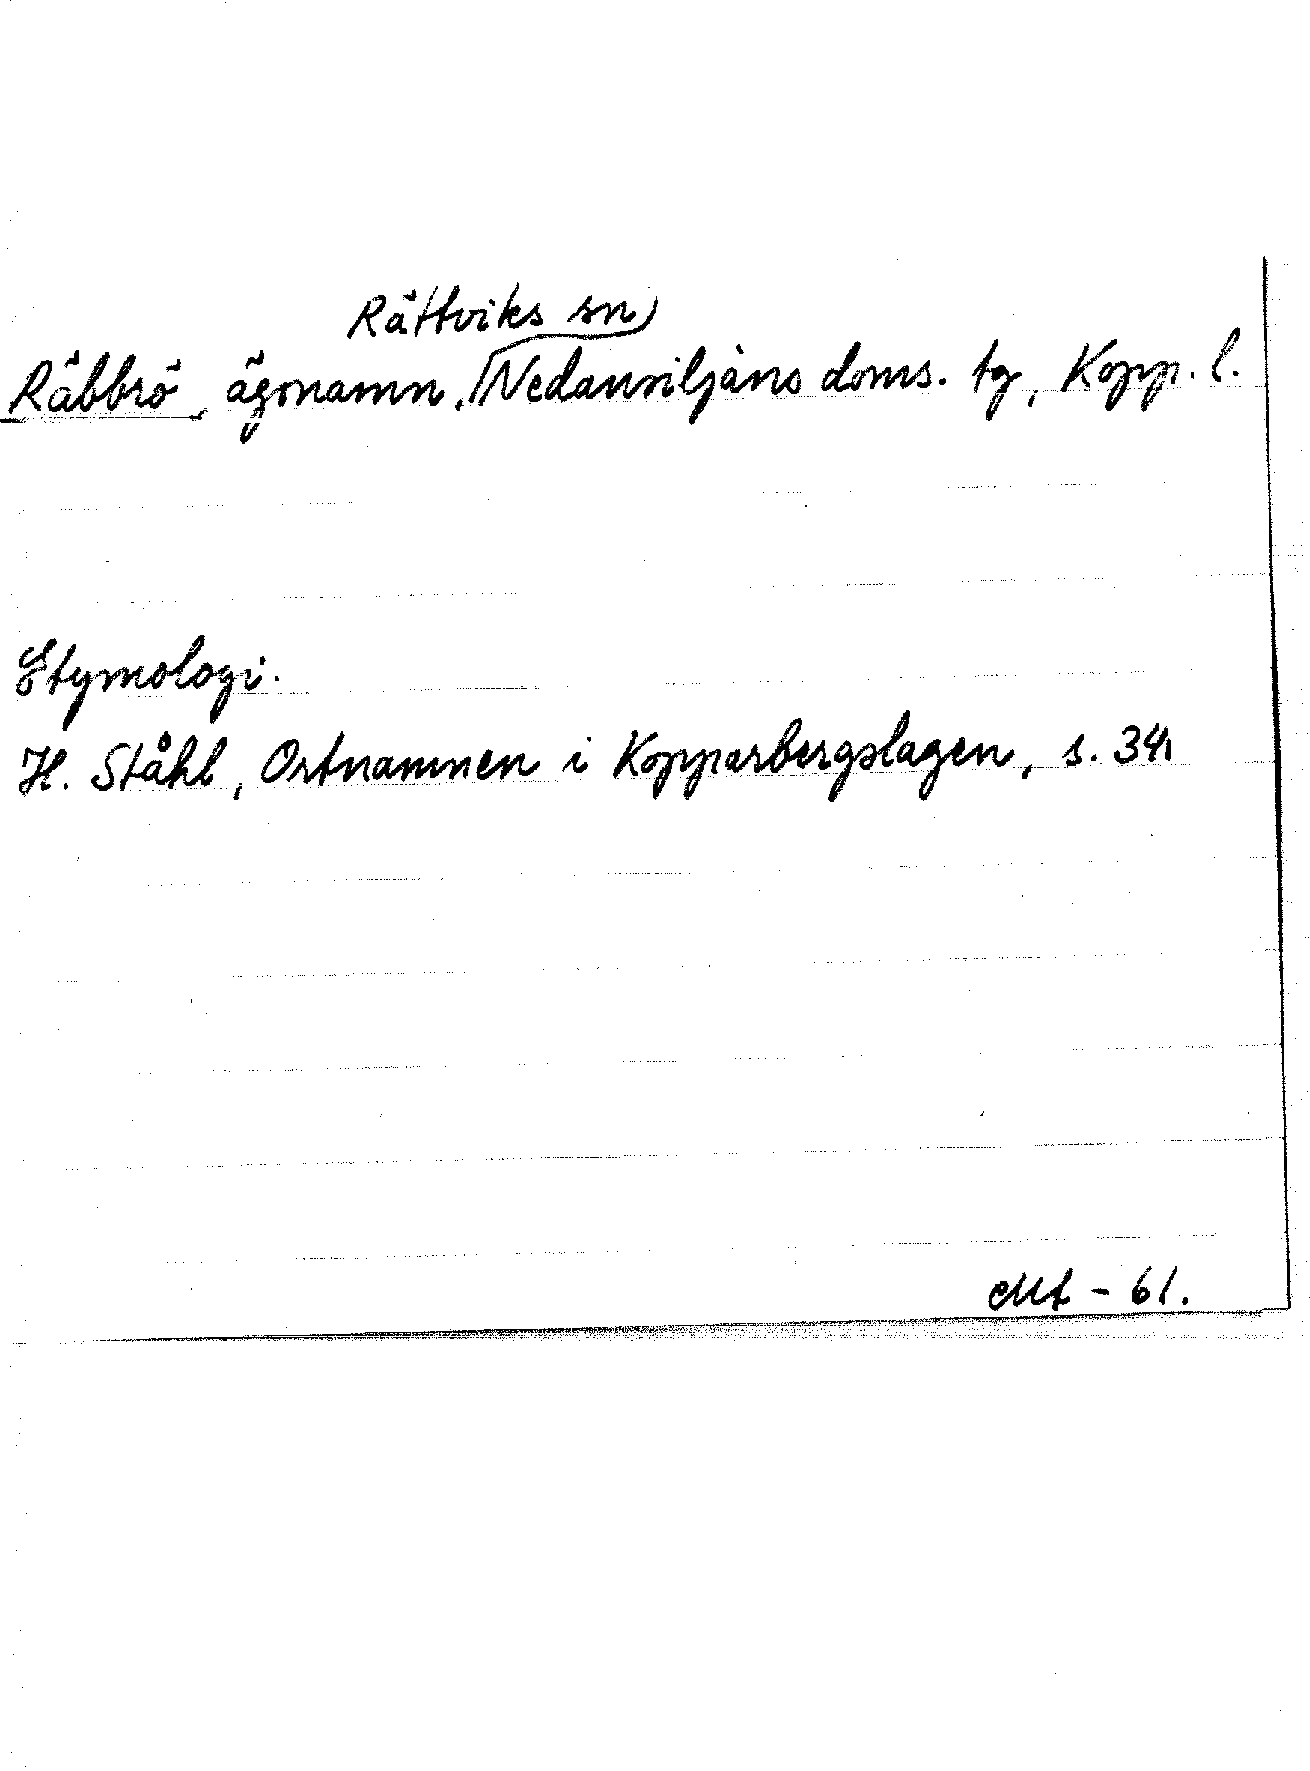 Rättviks sn
Räbbrö, ägonamn, Nedansiljans doms. tg, Kopp. l.
Etymologi.
H. Ståhl, Ortnamnen i Kopparbergslagen, s. 34.
- 61.